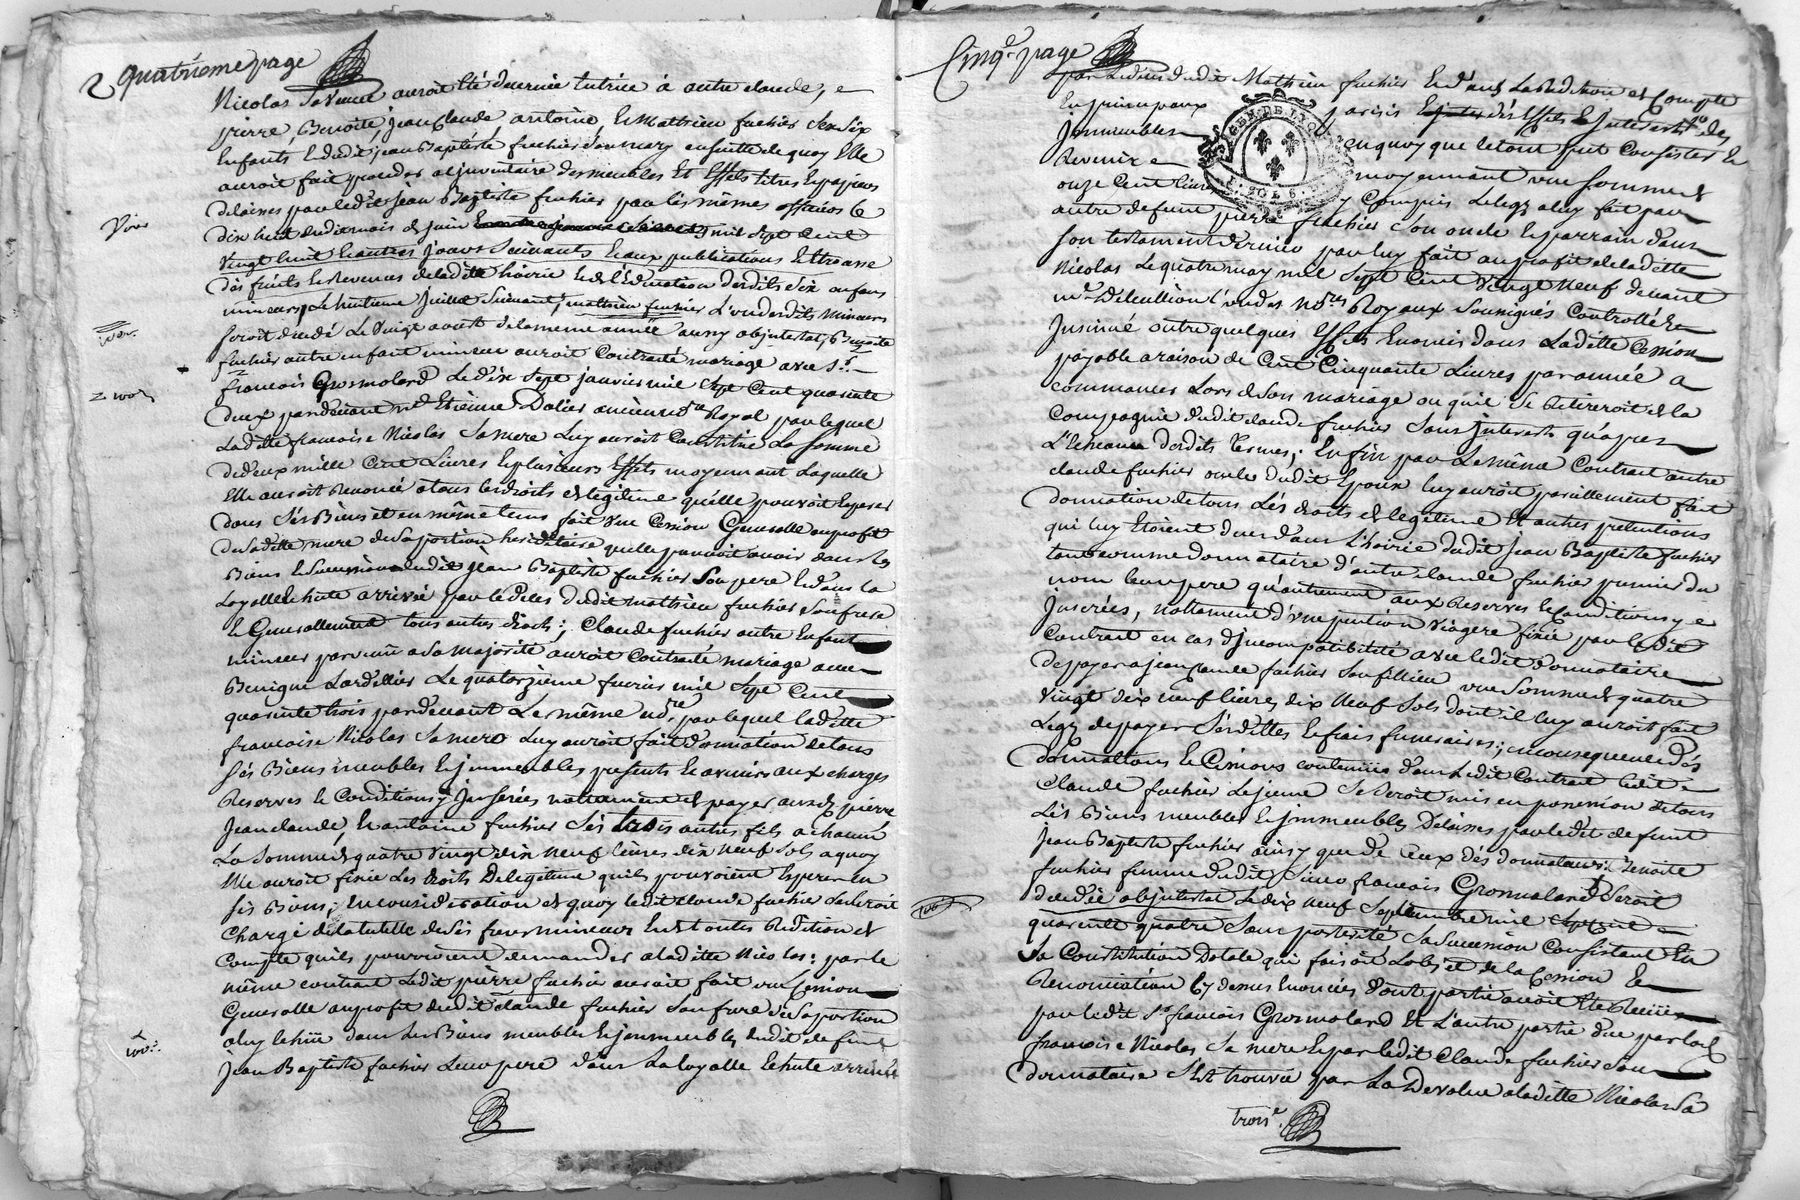 2 quatrieme page
Nicolas sa veuve auroit été decernée tutrice à autre claude,
pierre, Benoite jean Claude antoine Et Mathieu fuchier ses six
Enfants Et dudit jean Baptiste fuchier son mary ensuitte de quoy Elle
auroit fait proceder a l'inventaire des meubles Et Effets titres Et papiers
delaissés par ledit jean Baptiste fuchier par les mêmes officiers le
dix huit dudit mois de juin mil sept cent
vingt huit Et autres jours suivants Et aux publications Et
des fruits Et Revenus de ladite hoirie Et de l'Education desdits six enfans
mineurs, Le huitieme juillet suivant; mathieu fuchier L'un desdits mineurs
seroit decedé Le vingt aoust de la meme année aussy abjntestat, Benoite
fuchier autre enfant mineur auroit Contracté mariage avec Sr.
francois Gromolard Le dix sept janvier mil sept cent quarante
deux pardevant me Etienne Dalier ancien nore Royal par lequel
Ladite francoise Nicolas sa mere Luy auroit Constitué La somme
de deux mille Cent Livres Et plusieurs Effets moyennant Laquelle
Elle auroit Renoncé a tous les droits de legitime qu'elle pouvoit Esperer
dans ses Biens et en même tems fait une Cession Generalle au profit
de sadite mere de sa portion hereditaire qu'elle pouvoit avoir dans les
Biens Et succession dudit jean Baptiste fuchier son pere Et dans la
Layolle Echute arrivée par le deces dudit mathieu fuchier son frere
Et Generallement tous autres droits; Claude fuchier autre Enfant
mineur parvenu a sa majorité auroit Contracté mariage avec
Benigne Lardellier Le quatorzieme fevrier mil sept Cent
quarante trois pardevant Le même nore, par lequel ladite
francoise Nicolas sa mere Luy auroit fait donnation de tous
ses Biens meubles Et jmmeubles presents Et avenir aux charges
Reserves Et Conditions y jnserées nottamment de payer auxdz pierre
jean claude, Et antoine fuchier ses trois autres fils a chacun
La somme de quatre vingt dix neuf livres dix neuf sols a quoy
Elle auroit fixée Les droits de legitime qu'ils pouvoient Esperer en
ses Biens; En consideration de quoy ledit claude fuchier se seroit
chargé de la tutelle de ses freres mineurs Et de toutes Reddition de
Compte qu'ils pourroient demander a ladite Nicolas: par le
même contrat Ledit pierre fuchier auroit fait une Cession
Generalle au profit dudit claude fuchier son frere de sa portion
a luy Echüe dans Les Biens meubles Et jmmeubles dudit defunt
jean Baptiste fuchier Leur pere dans La layolle Echute arrivée
Cinqe. page
par Le deces dudit Mathieu fuchier Et dans La Reddition de Compte
En principaux
jmmeubles
Revenus
en quoy que le tout put Consister
moyennant une somme de
onze Cent livres
y Compris Le legz a luy fait par
autre defunt pierre fuchier son oncle Et parrain dans
son testament dernier par luy fait au profit de ladite
Nicolas Le quatre may mil sept Cent vingt neuf devant
nores Royaux soussignés Controllé Et
jnsinué outre quelques Effets Enoncés dans Ladite Cession
payable a raison de Cent Cinquante Livres par année a
commancer Lors de son mariage ou qu'il se Retireroit de la
Compagnie dudit claude fuchier sans jnterests qu'apres
L'Echeance desdits termes; Enfin par Le même Contrat autre
claude fuchier oncle dudit Epoux luy auroit pareillement fait
donnation de tous ses droits de legitime Et autres pretentions
qui luy Etoient dues dans L'hoirie dudit jean Baptiste fuchier
tant comme donnataire d'autre claude fuchier premier du
nom leur pere qu'autrement aux Reserves Et Conditions y
jnserées, nottament d'une pention viagere fixée par ledit
Contrat en cas d'jncompatibilité avec ledit donnataire
de payer a jean claude fuchier son filleul une somme de quatre
vingt dix neuf livres dix neuf sols dont il luy auroit fait
Legz de payer ses dettes Et frais funeraires; en consequence des
donnations Et Cessions contenües dans Ledit Contrat ledit
claude fuchier Le jeune se seroit mis en possession de tous
Les Biens meubles Et jmmeubles Delaissés par ledit defunt
jean Baptiste fuchier ainsy que de Ceux des donnateurs: Benoite
fuchier femme dudit Sieur francois Gromolard seroit
decedée abjntestat Le dix neuf septembre mil sept cent
quarente quatre sans posterité sa succession Consistant En
sa Constitution Dotale qui faisoit L'objet de la Cession Et
Renonciation Cy dessus Enoncées dont partie avoit Eté Receüe
par ledit sr francois Gromolard Et L'autre partie due par lade
francoise Nicolas sa mere Et par ledit Claude fuchier son
donnataire s'Est trouvée par La devolue a ladite Nicolas sa
Troise.